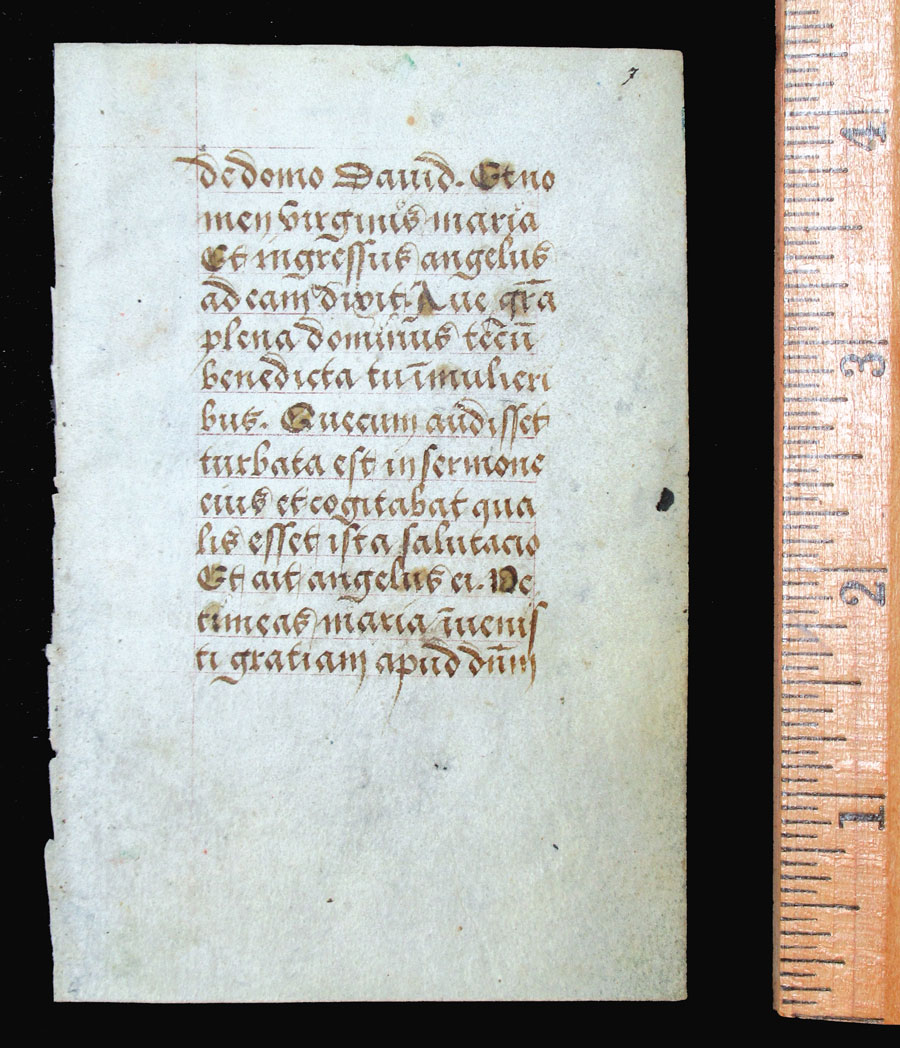 7
de domo Dauid. Et no
men virginis maria
Et ingressus angelus
ad eam dixit. Aue gr̄a
plena dominus tecū
benedicta tu ī mulieri
bus. Que cum audisset
turbata est in sermone
eius et cogitabat qua
lis esset ista salutacio
Et ait angelus ei. Ne
timeas maria īuenis
ti gratiam apud dūm
4
3
2
1